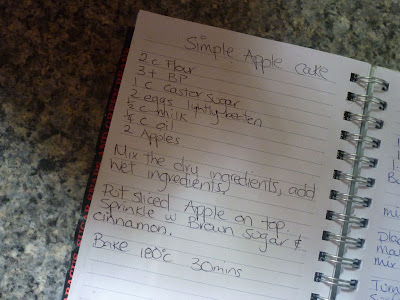 Simple Apple Cake
2 c Flour
3 t BP
1 c Castor Sugar
2 eggs lightly beaten
c milk
c oil
2 Apples
Mix the dry ingredients, add
wet ingredients,
Put sliced Apple on top.
Sprinkle w Brown sugar &
cinnamon.
Bake 180°c 30mins
mix